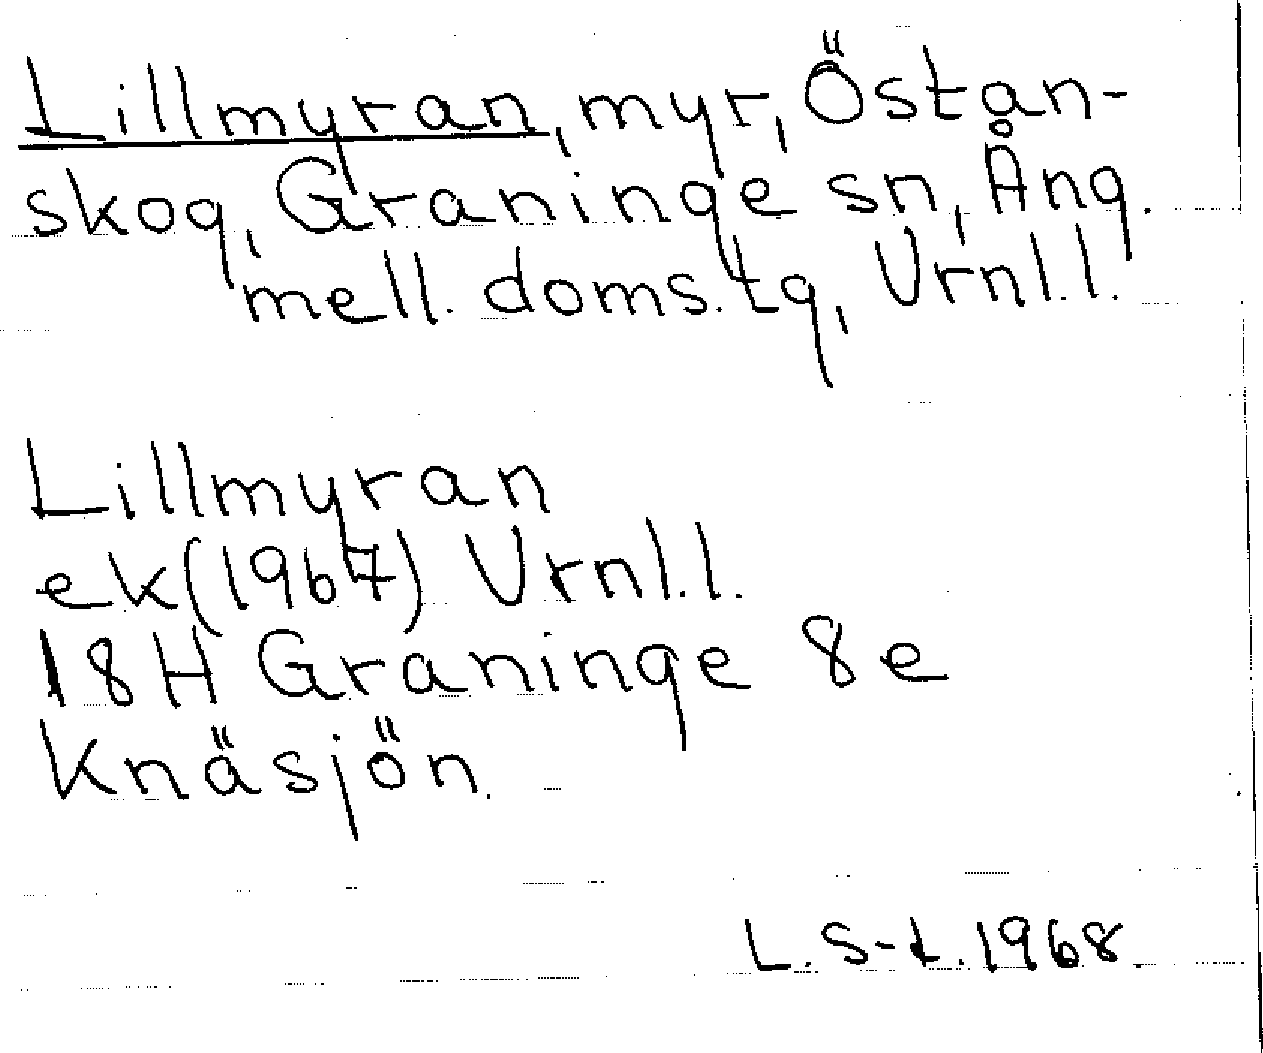 Lillmyran, myr, Östan-
skog, Graninge sn, Ång.
mell. doms. tg, Vrnl.l.
Lillmyran
ek(1967) Vrnl.l.
18H Graninge 8e
Knäsjön.
L. S-t. 1968